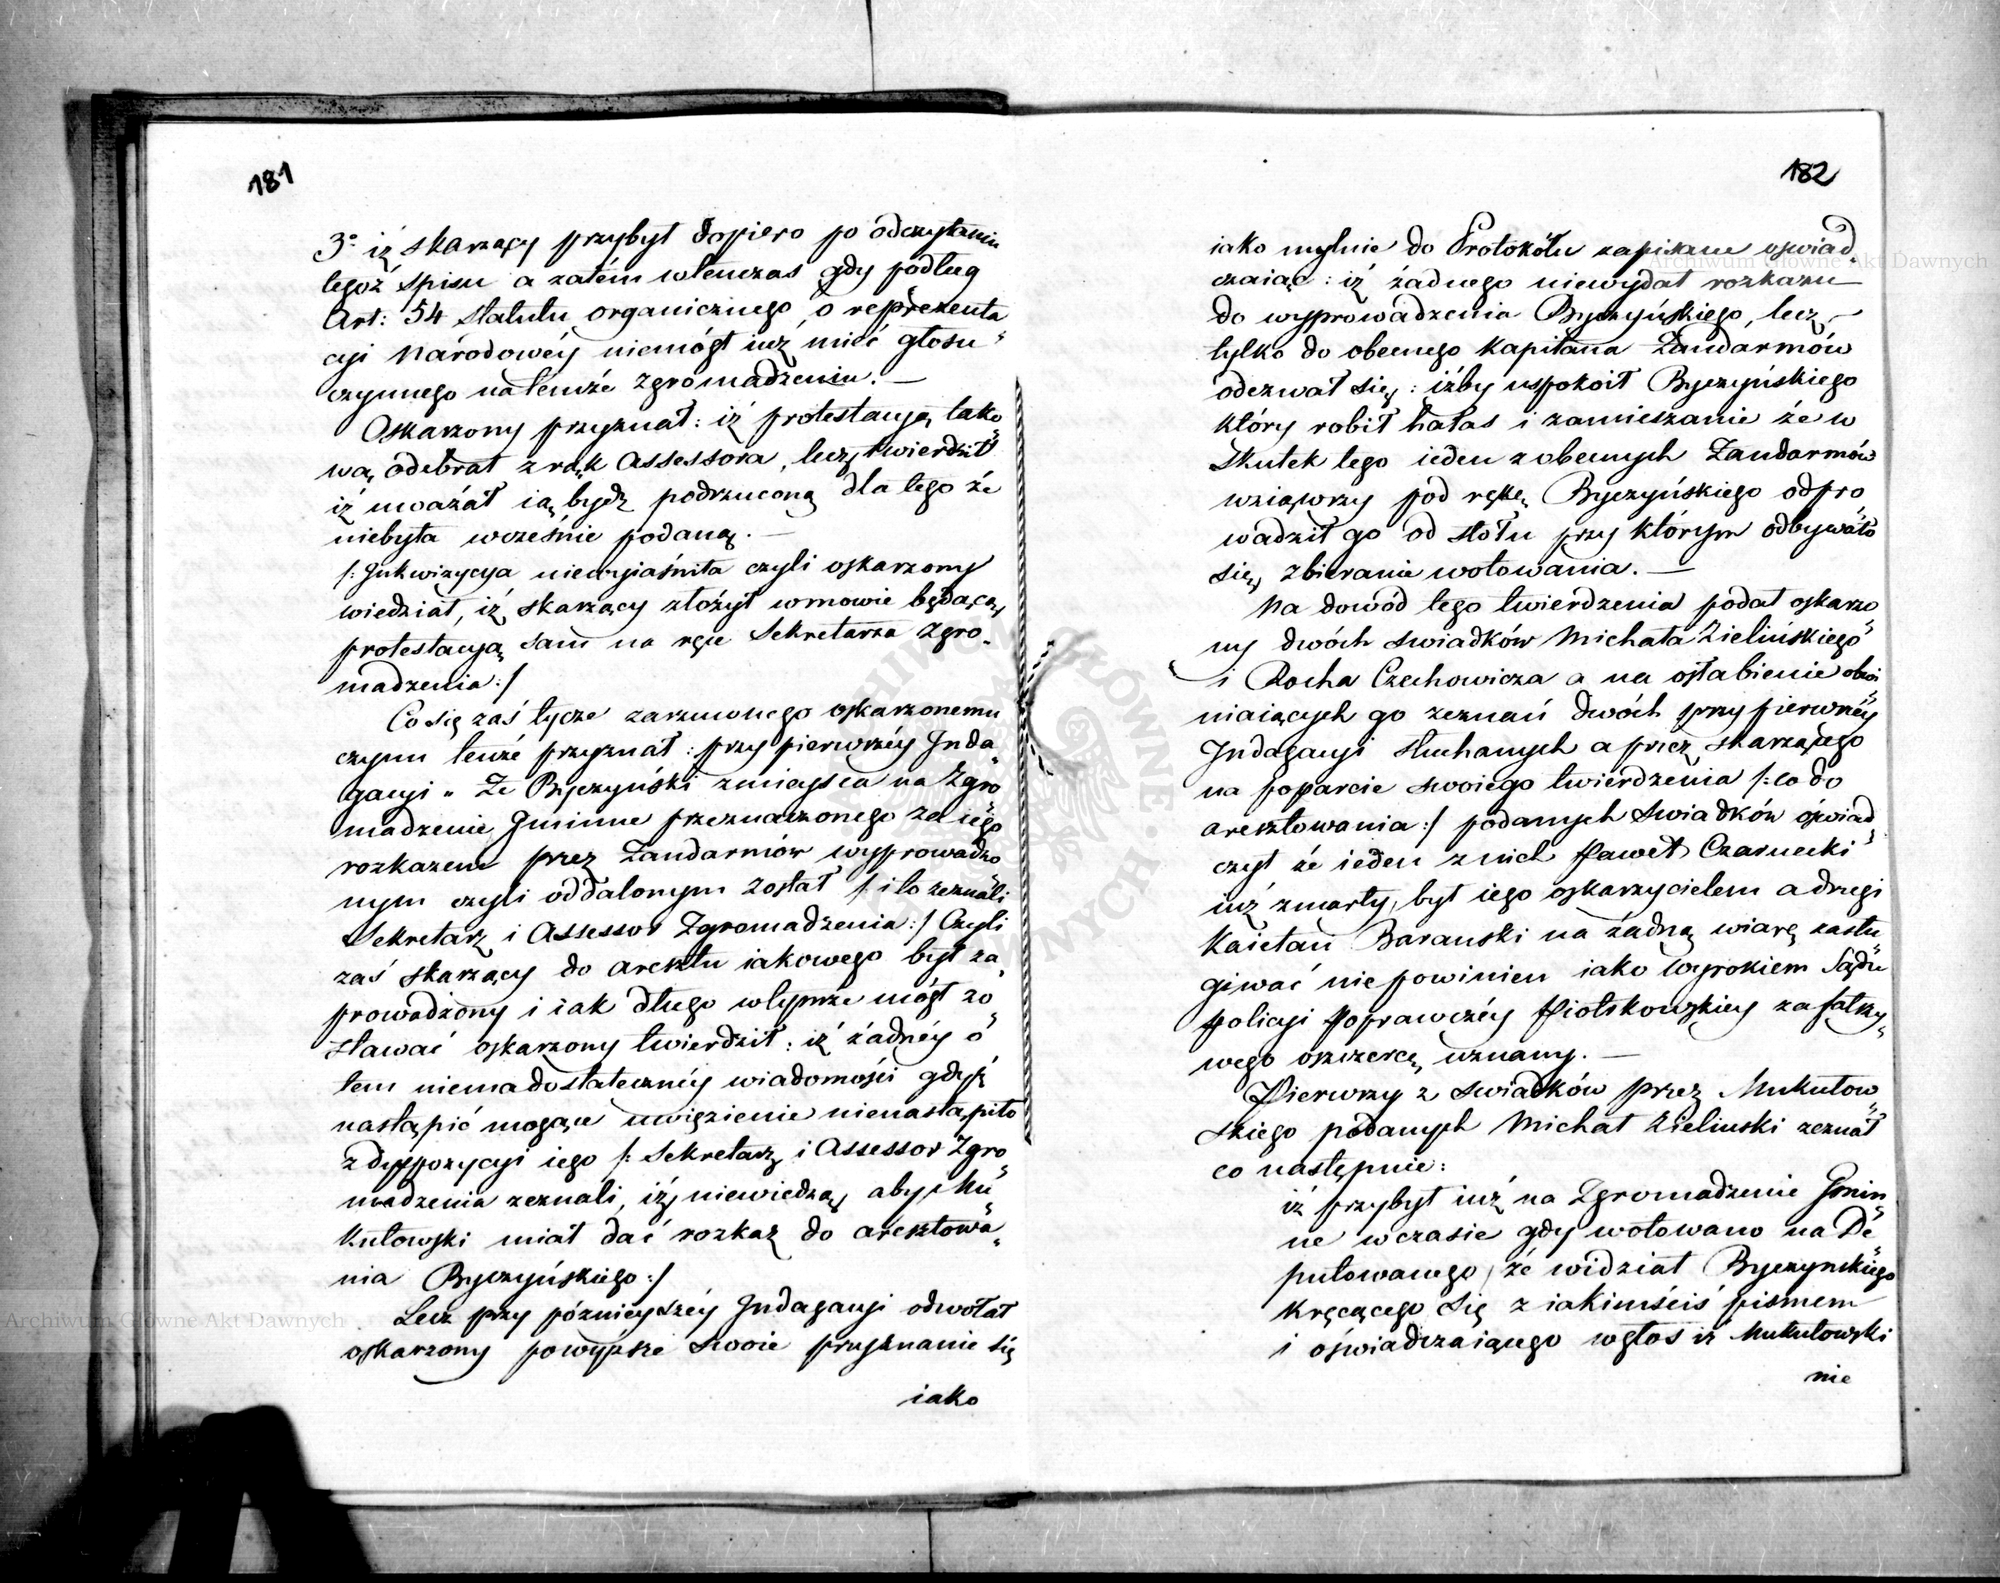 181
3º iż skarzący przybył dopiero po odczytaniu
tegoż spisu a zatém wtenczas gdy podług
Art: 54 statutu organicznego, o reprezenta
cyi Narodowéy niemógł iuż mieć głosu
czynnego na temże Zgromadzeniu. —
Oskarzony przyznał: iż protestacyą tako
wą odebrał z rąk Assessora, lecz twierdził
iż uważał ią bydź podrzuconą dla tego że
niebyła wcześnie podaną. —
/: Inkwizycya niewyiaśniła czyli oskarzony
wiedział, iż skarzący złożył w mowie będącą
protestacyą sam na ręce Sekretarza Zgro-
madzenia :/
Co się zaś tycze zarzuconego oskarzonemu
czynu tenże przyznał: przy pierwszéy Inda
gacyi „ Że Byczyński z mieysca na Zgro
madzenie Gminne przeznaczonego za iego
rozkazem przez Żandarmów wyprowadzo
nym czyli oddalonym został /: i to zeznali
Sekretarz i Assessor Zgromadzenia :/ Czyli
zaś skarzący do aresztu iakowego był za
prowadzony i iak długo w tymże mógł zo
stawać oskarzony twierdził: iż żadnéy o
tem niema dostatecznéy wiadomości gdyż
nastąpić mogące uwięzienie nienastąpiło
z dyspozycyi iego /: Sekretarz i Assessor Zgro
madzenia zeznali, iż niewiedzą aby Mu
kułowski miał dać rozkaz do aresztowa
nia Byczyńskiego :/
Lecz przy poźnieyszéy Indagacyi odwołał
oskarzony powyższe swoie przyznanie się
iako
182
iako mylnie do Protokółu zapisane oswiad
czaiąc: iż żadnego niewydał rozkazu
do wyprowadzenia Byczyńskiego, lecz
tylko do obecnego Kapitana Żandarmów
odezwał się: iżby uspokoił Byczyńskiego
który robił hałas i zamieszanie że w
Skutek tego ieden z obecnych Żandarmów
wziąwszy pod rękę Byczyńskiego odpro
wadził go od stołu przy którym odbywało
się zbieranie wotowania. —
Na dowód tego twierdzenia podał oskarzo
ny dwóch swiadków Michała Zielińskiego
i Rocha Czechowicza a na osłabienie obwi
niaiących go zeznań dwóch przy pierwszéy
Indagacyi słuchanych a przez skarzącego
na poparcie swoiego twierdzenia /: co do
aresztowania :/ podanych Swiadków oświad
czył że ieden z nich Paweł Czarnecki
iuż zmarły, był iego oskarzycielem a drugi
Kaietan Barański na żadną wiarę zasłu
giwać niepowinien iako Wyrokiem Sądu
Policyi Poprawczéy Piotrkowskiey za fałszy-
wego oszczercę uznany. —
Pierwszy z swiadków przez Mukułow
skiego podanych Michał Zielinski zeznał
co następnie:
iż przybył iuż na Zgromadzenie Gmin
ne w czasie gdy wotowano na De
putowanego, że widział Byczynskiego
kręcącego się z iakimściś pismem
i oświadczaiącego w głos iż Mukułowski
nie
Archiwum Główne Akt Dawnych
Archiwum Główne Akt Dawnych